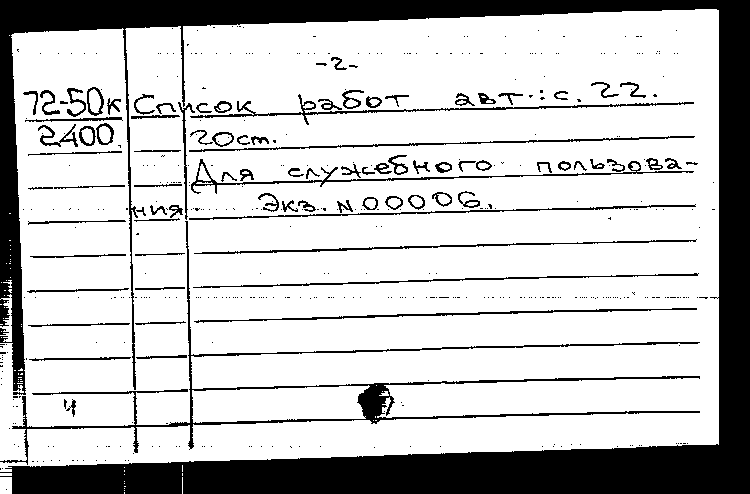 -2-
72-50к Список работ авт.: с. 22.
2400 20 cm.
Для служебного пользова-
ния. Экз. N 00006.
4